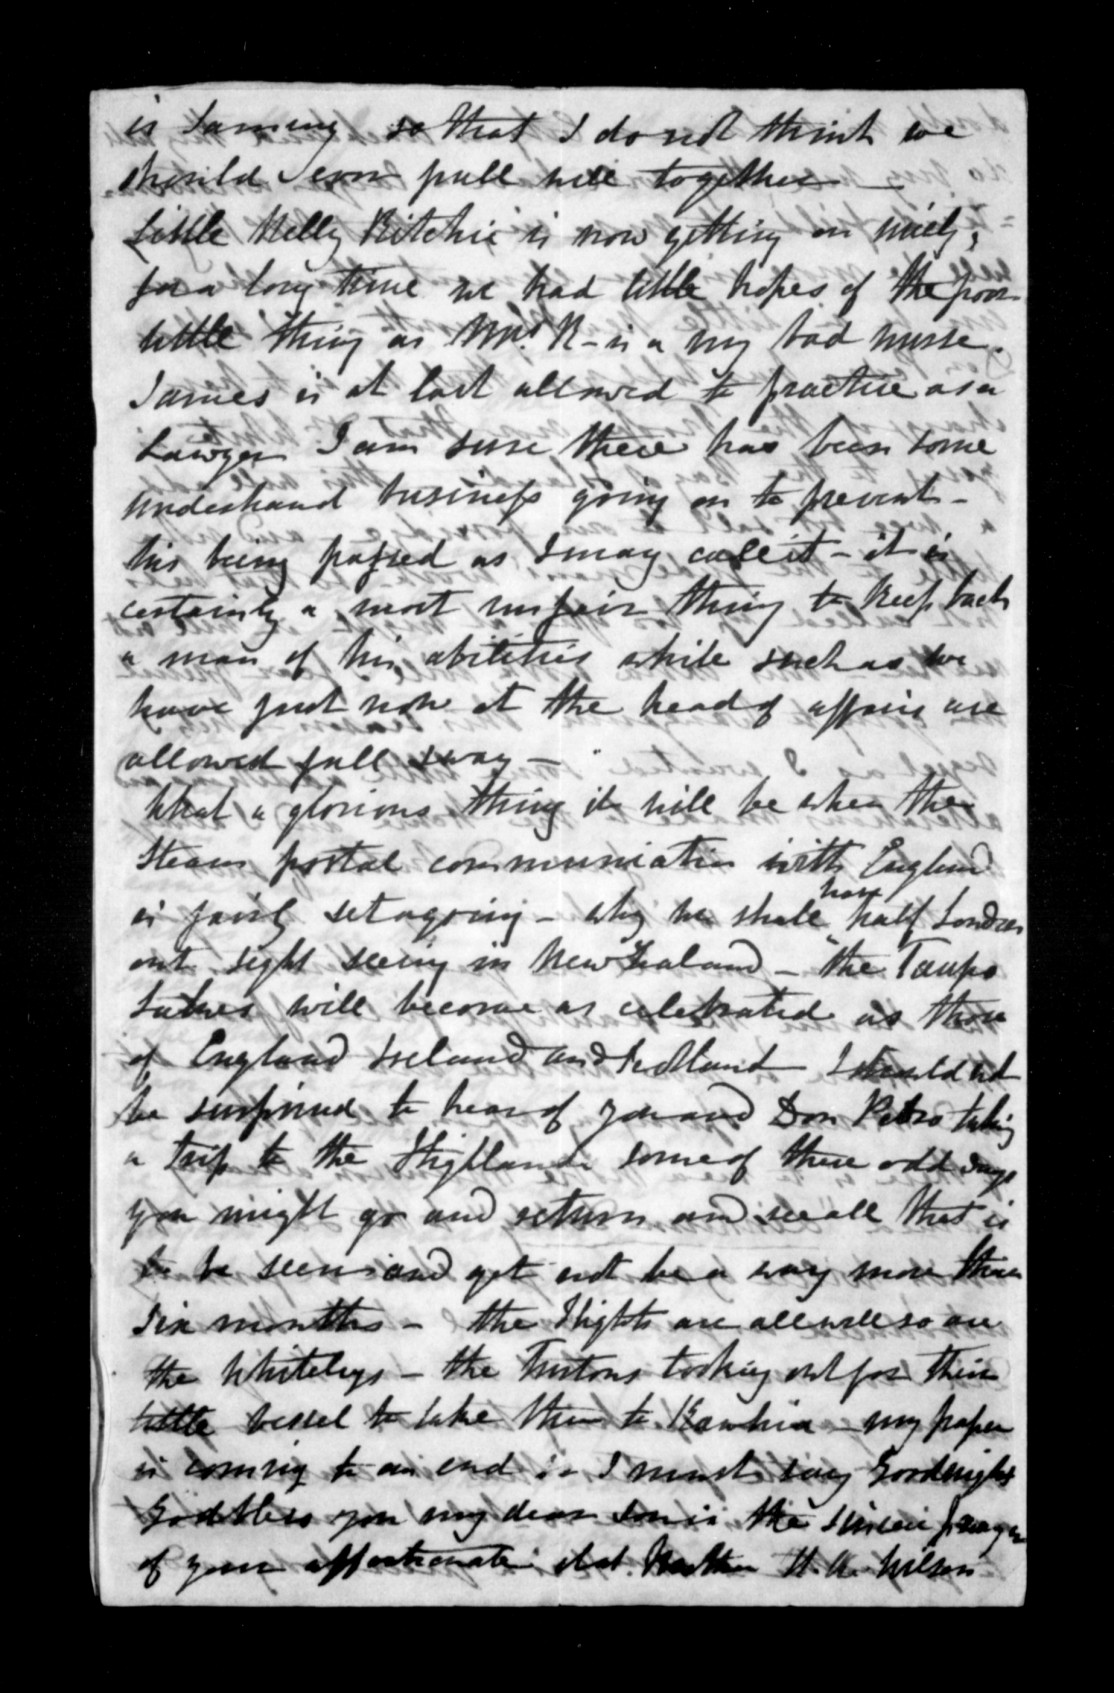 is Samey so that I do not think we
should soon pull well together —
Little Nelly Ritchie is now getting on nicely,
for a long time we had little hopes of the poor
little thing as Mrs. R - is a very bad nurse.
James is at last allowed to practice as a
Lawyer I am sure there has been some
underhand business going on to prevent -
his being passed as I may call it - it is
certainly a most unfair thing to keep back
a man of his abilities while such as we
have just now at the head of affairs are
allowed full sway —
What a glorious thing it will be when the
Steam postal communication with England
is fairly set agoing - why we shall have half London
out sight seeing in New Zealand - "the Taupo
Lakes will become as celebrated as those
of England Ireland and Scotland I should not
be surprised to hear of you and Don Pedro taking
a trip to the Highlands some of these odd days
you might go and return and see all that is
to be seen and yet not be away more than
six months - the Flights are all well so are
the Whiteleys - the Turtons looking out for their
little vessel to take them to Kawhia - my paper
is coming to an end so I must say Goodnight
God bless you my dear is the sincere prayer
of your affectionate Mother Wilson